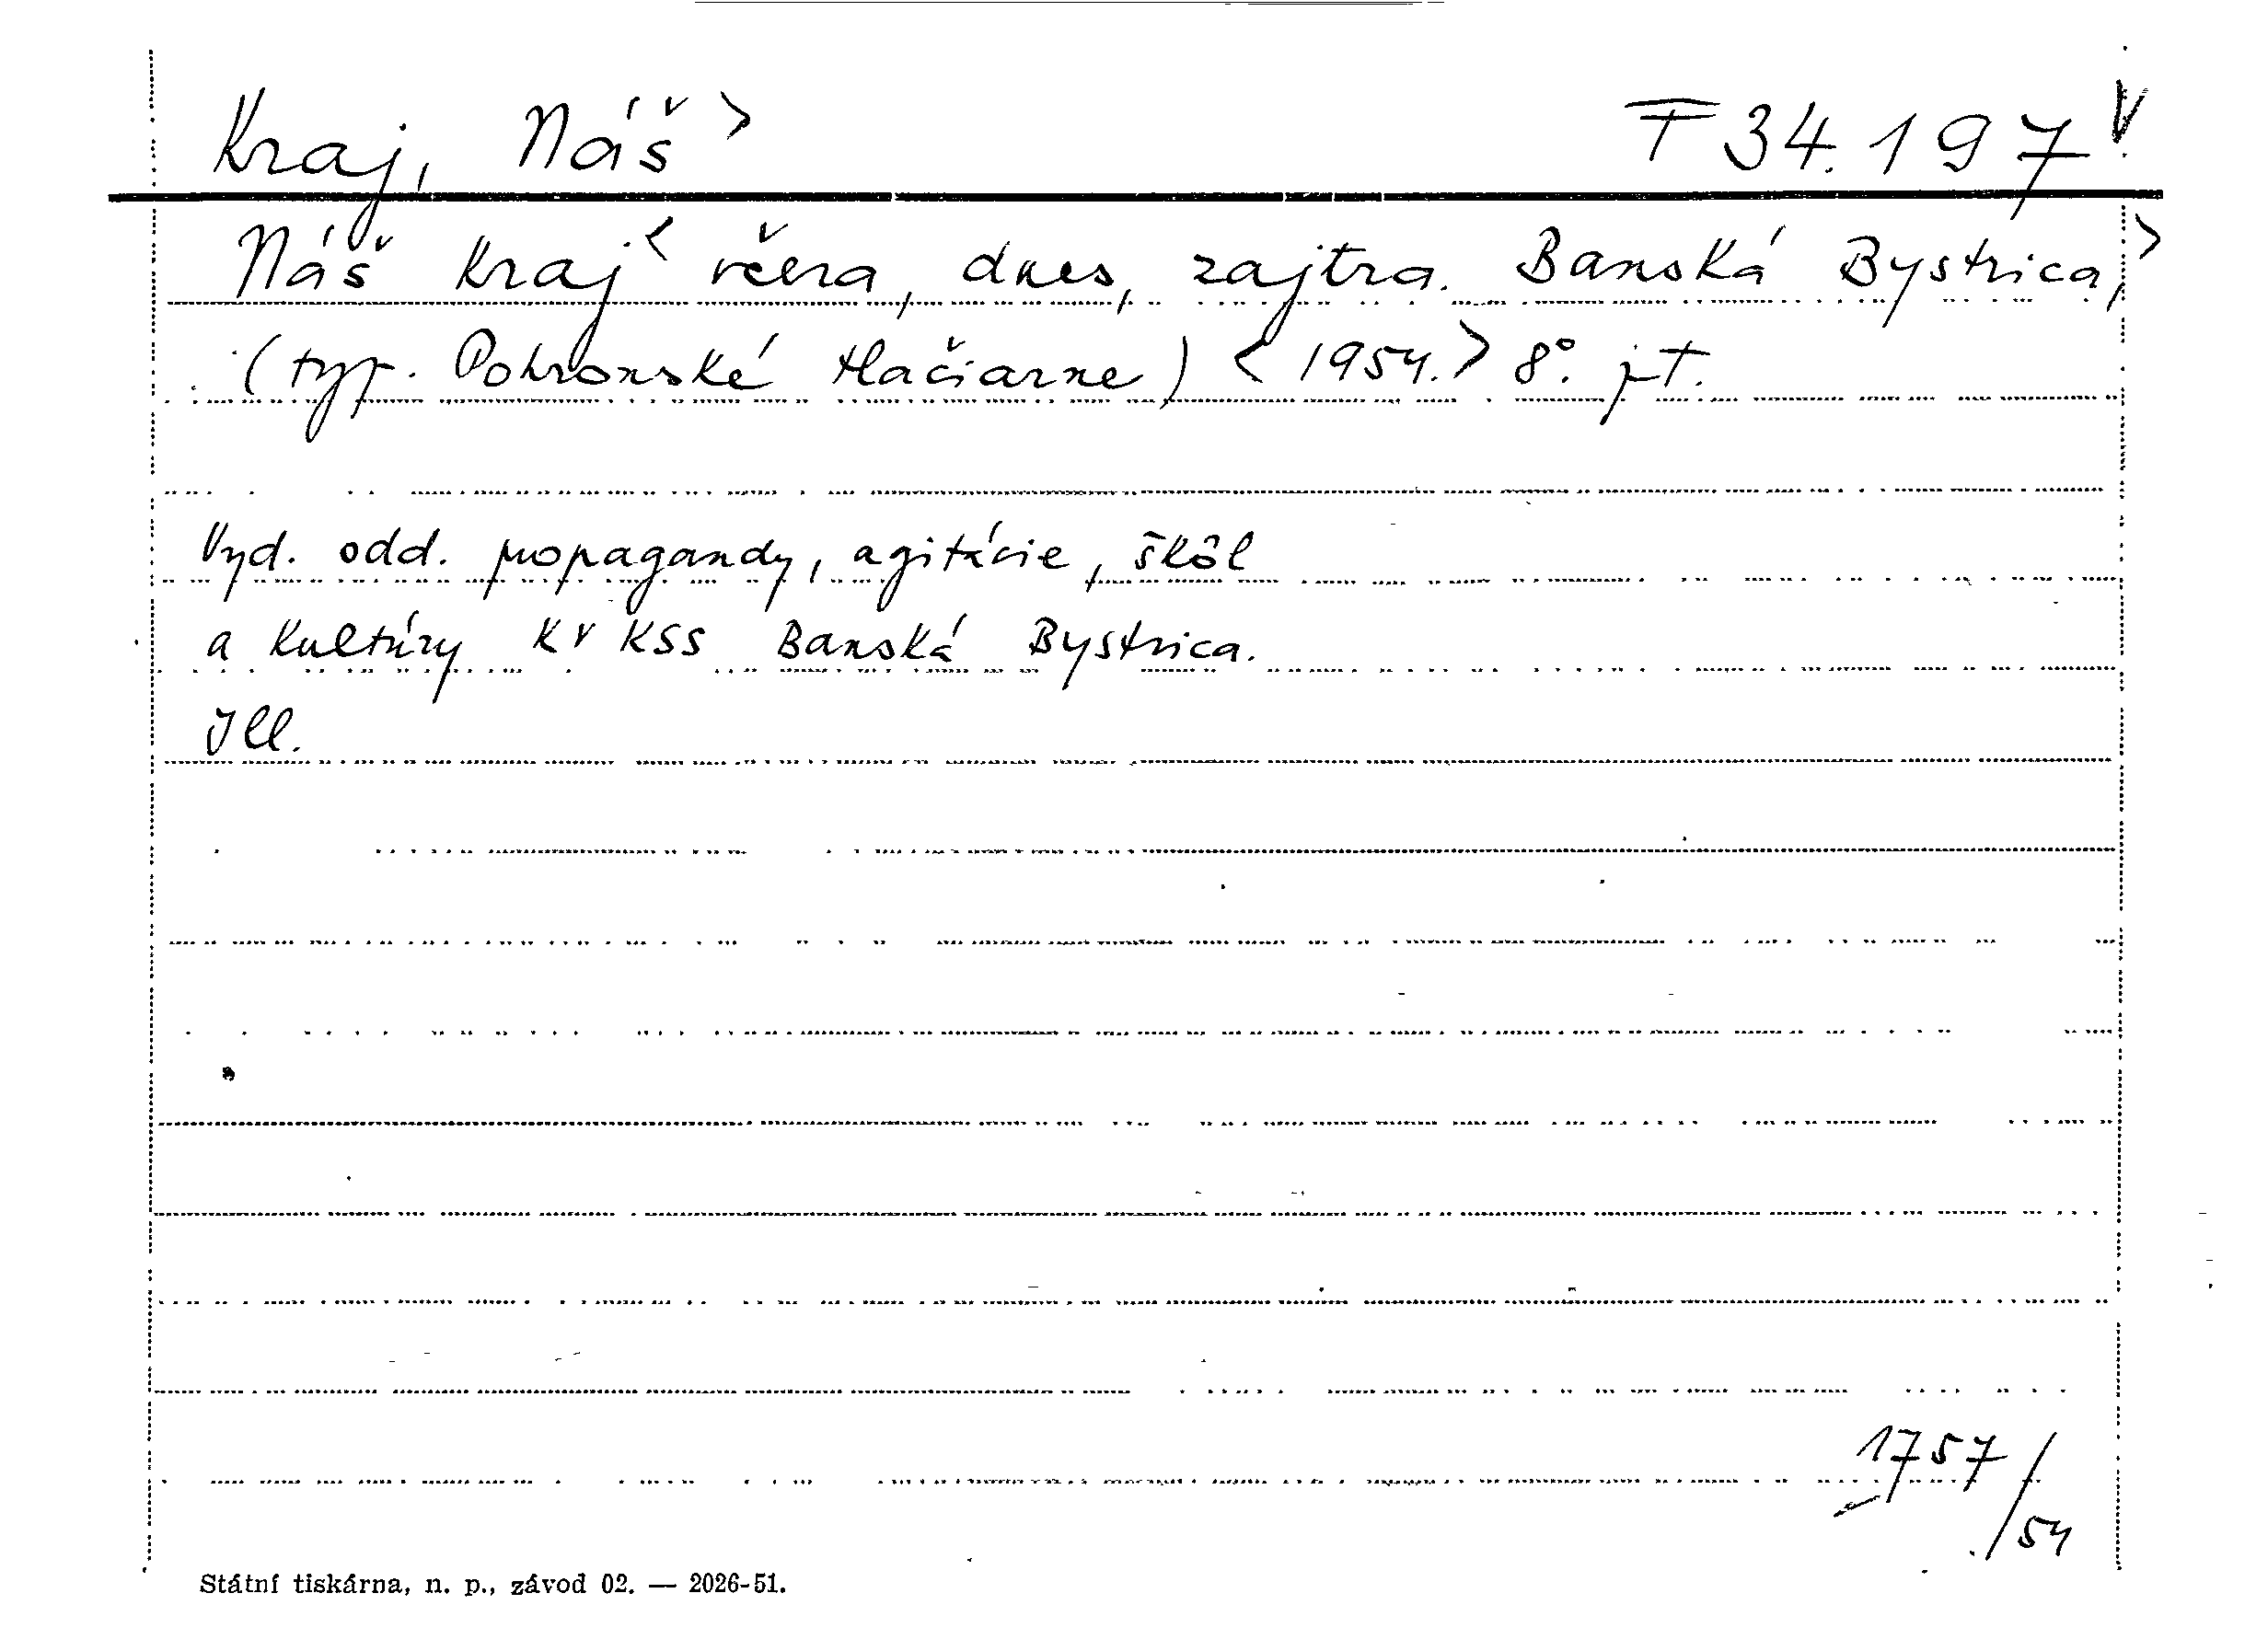 Kraj, Náš > T 34.197
Náš kraj < včera, dnes, zajtra. Banská Bystrica, >
(typ. Pohronské tlačiarne) < 1954. > 8°. jt.
Vyd. odd. propagandy, agitácie, škôl
a kultúry KV KSS Banská Bystrica.
Ill.
1757/54
Státní tiskárna, n. p., závod 02. — 2026-51.